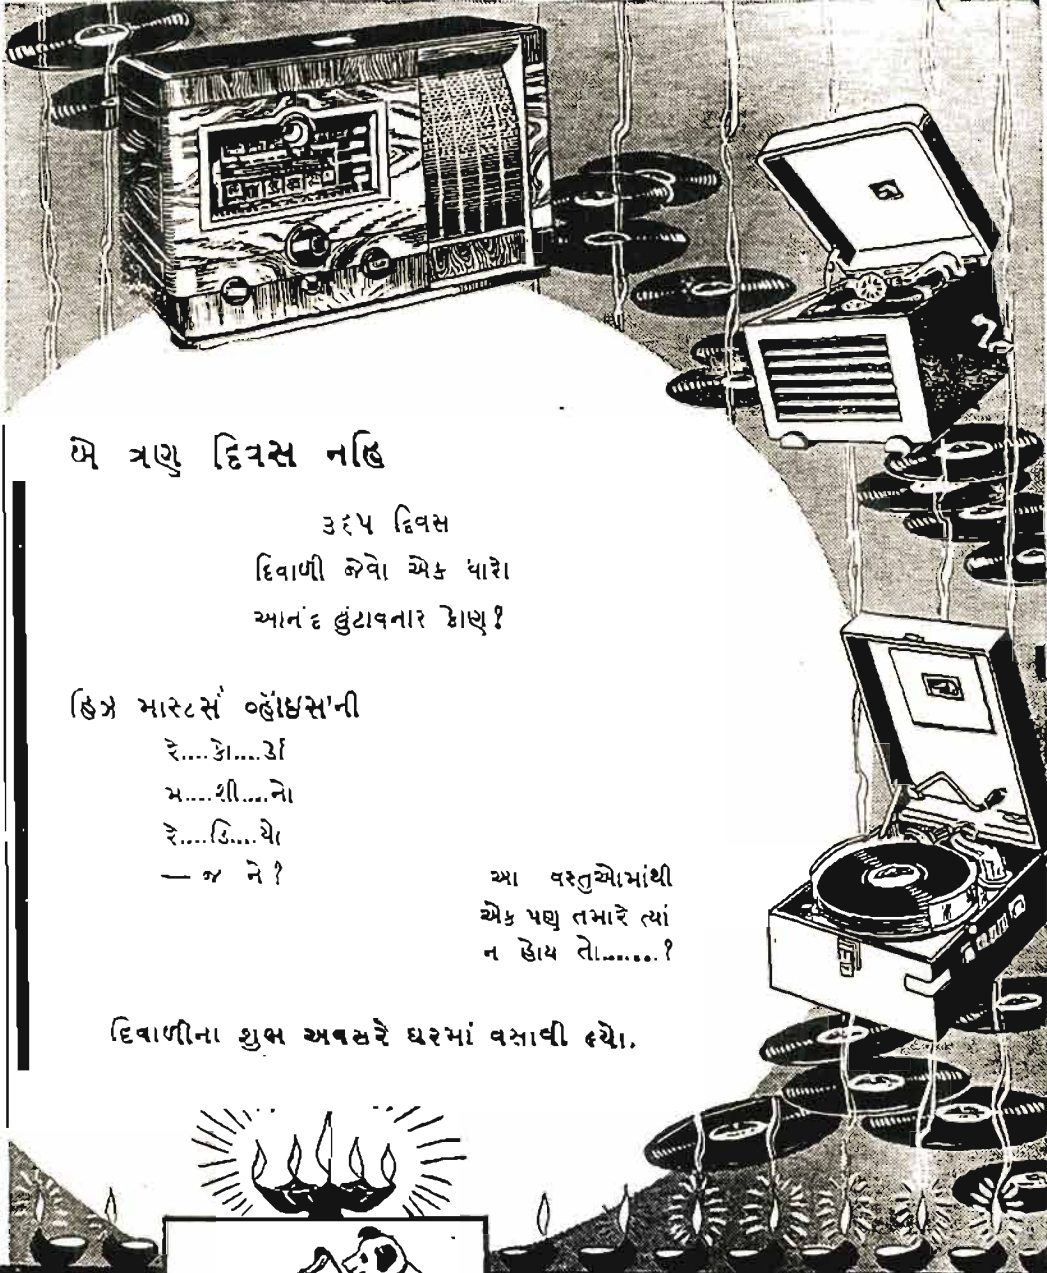 બે ત્રણ દિવસ નહિ
૩૬૫ દિવસ
દિવાળી જેવો એક ધારો
આનંદ લુંટાવનાર કોણ?
હિઝ માસ્ટર્સ વ્હૉઇસ'ની
રે....કો....ર્ડો
મ....શી....નો
રે....ડિ....યો
— જ ને?
આ વસ્તુઓમાંથી
એક પણ તમારે ત્યાં
ન હોય તો.......?
દિવાળીના શુભ અવસરે ઘરમાં વસાવી લ્યો.